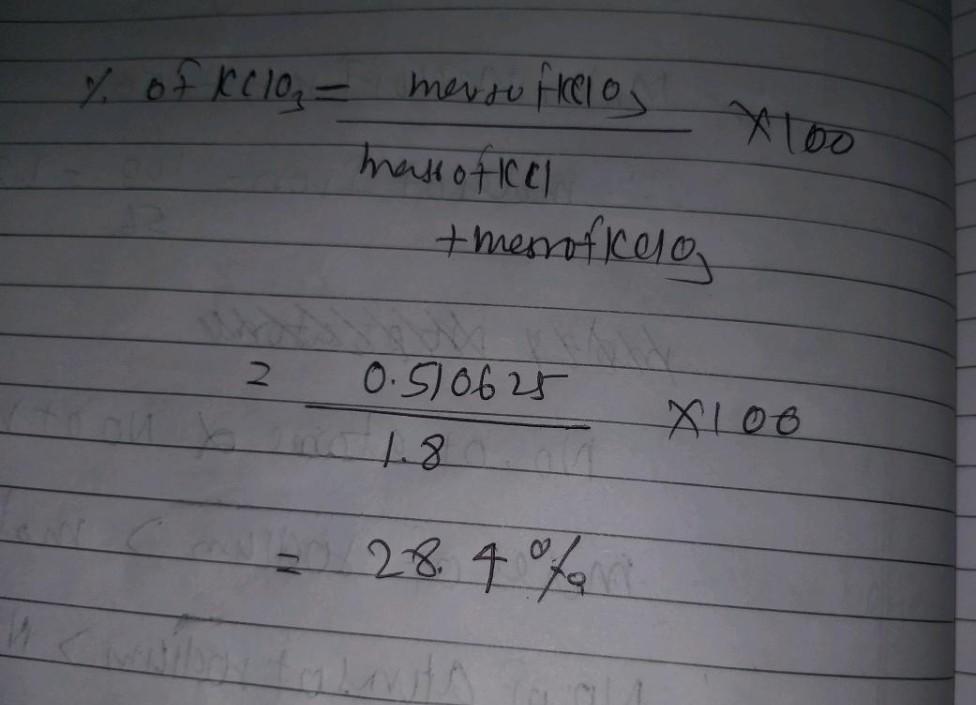 % of KClO3 = mass of KClO3
× 100
mass of KCl
+ mass of KClO3
= 0.510625
× 100
1.8
= 28.4 %